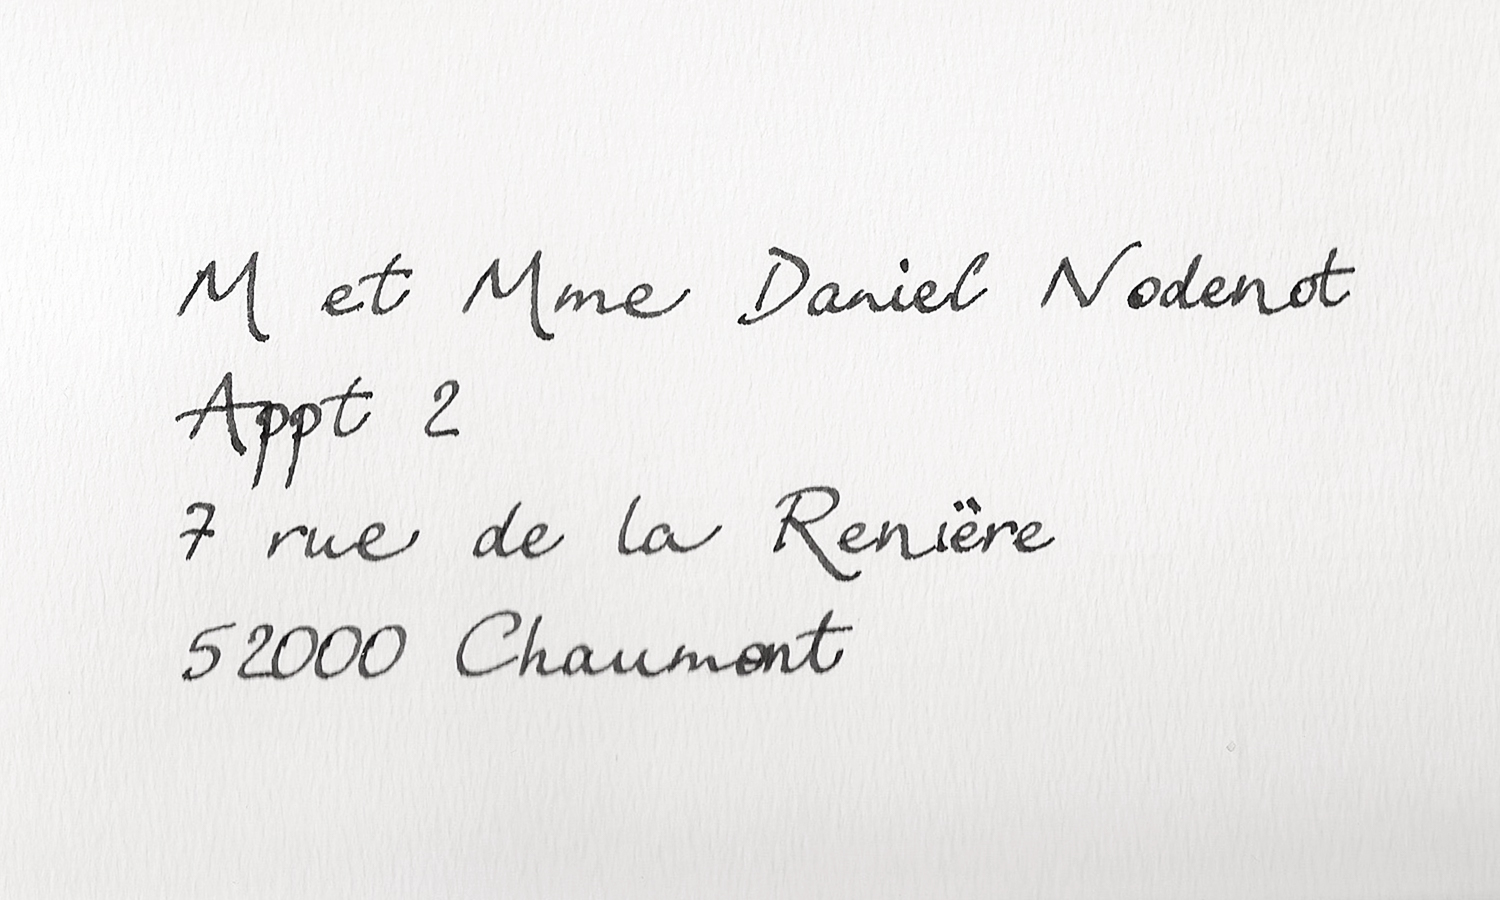 M et Mme Daniel Nodenot
Appt 2
7 rue de la Renière
52000 Chaumont